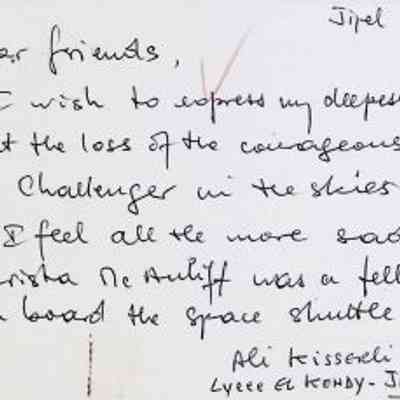 Jijel
ear friends,
I wish to express my deepest
at the loss of the courageous
Challenger in the skies
I feel all the more sad
rista Mc Auliff was a fell
board the space shuttle
Ali Kisserli
Lycee El Kendy - Ji